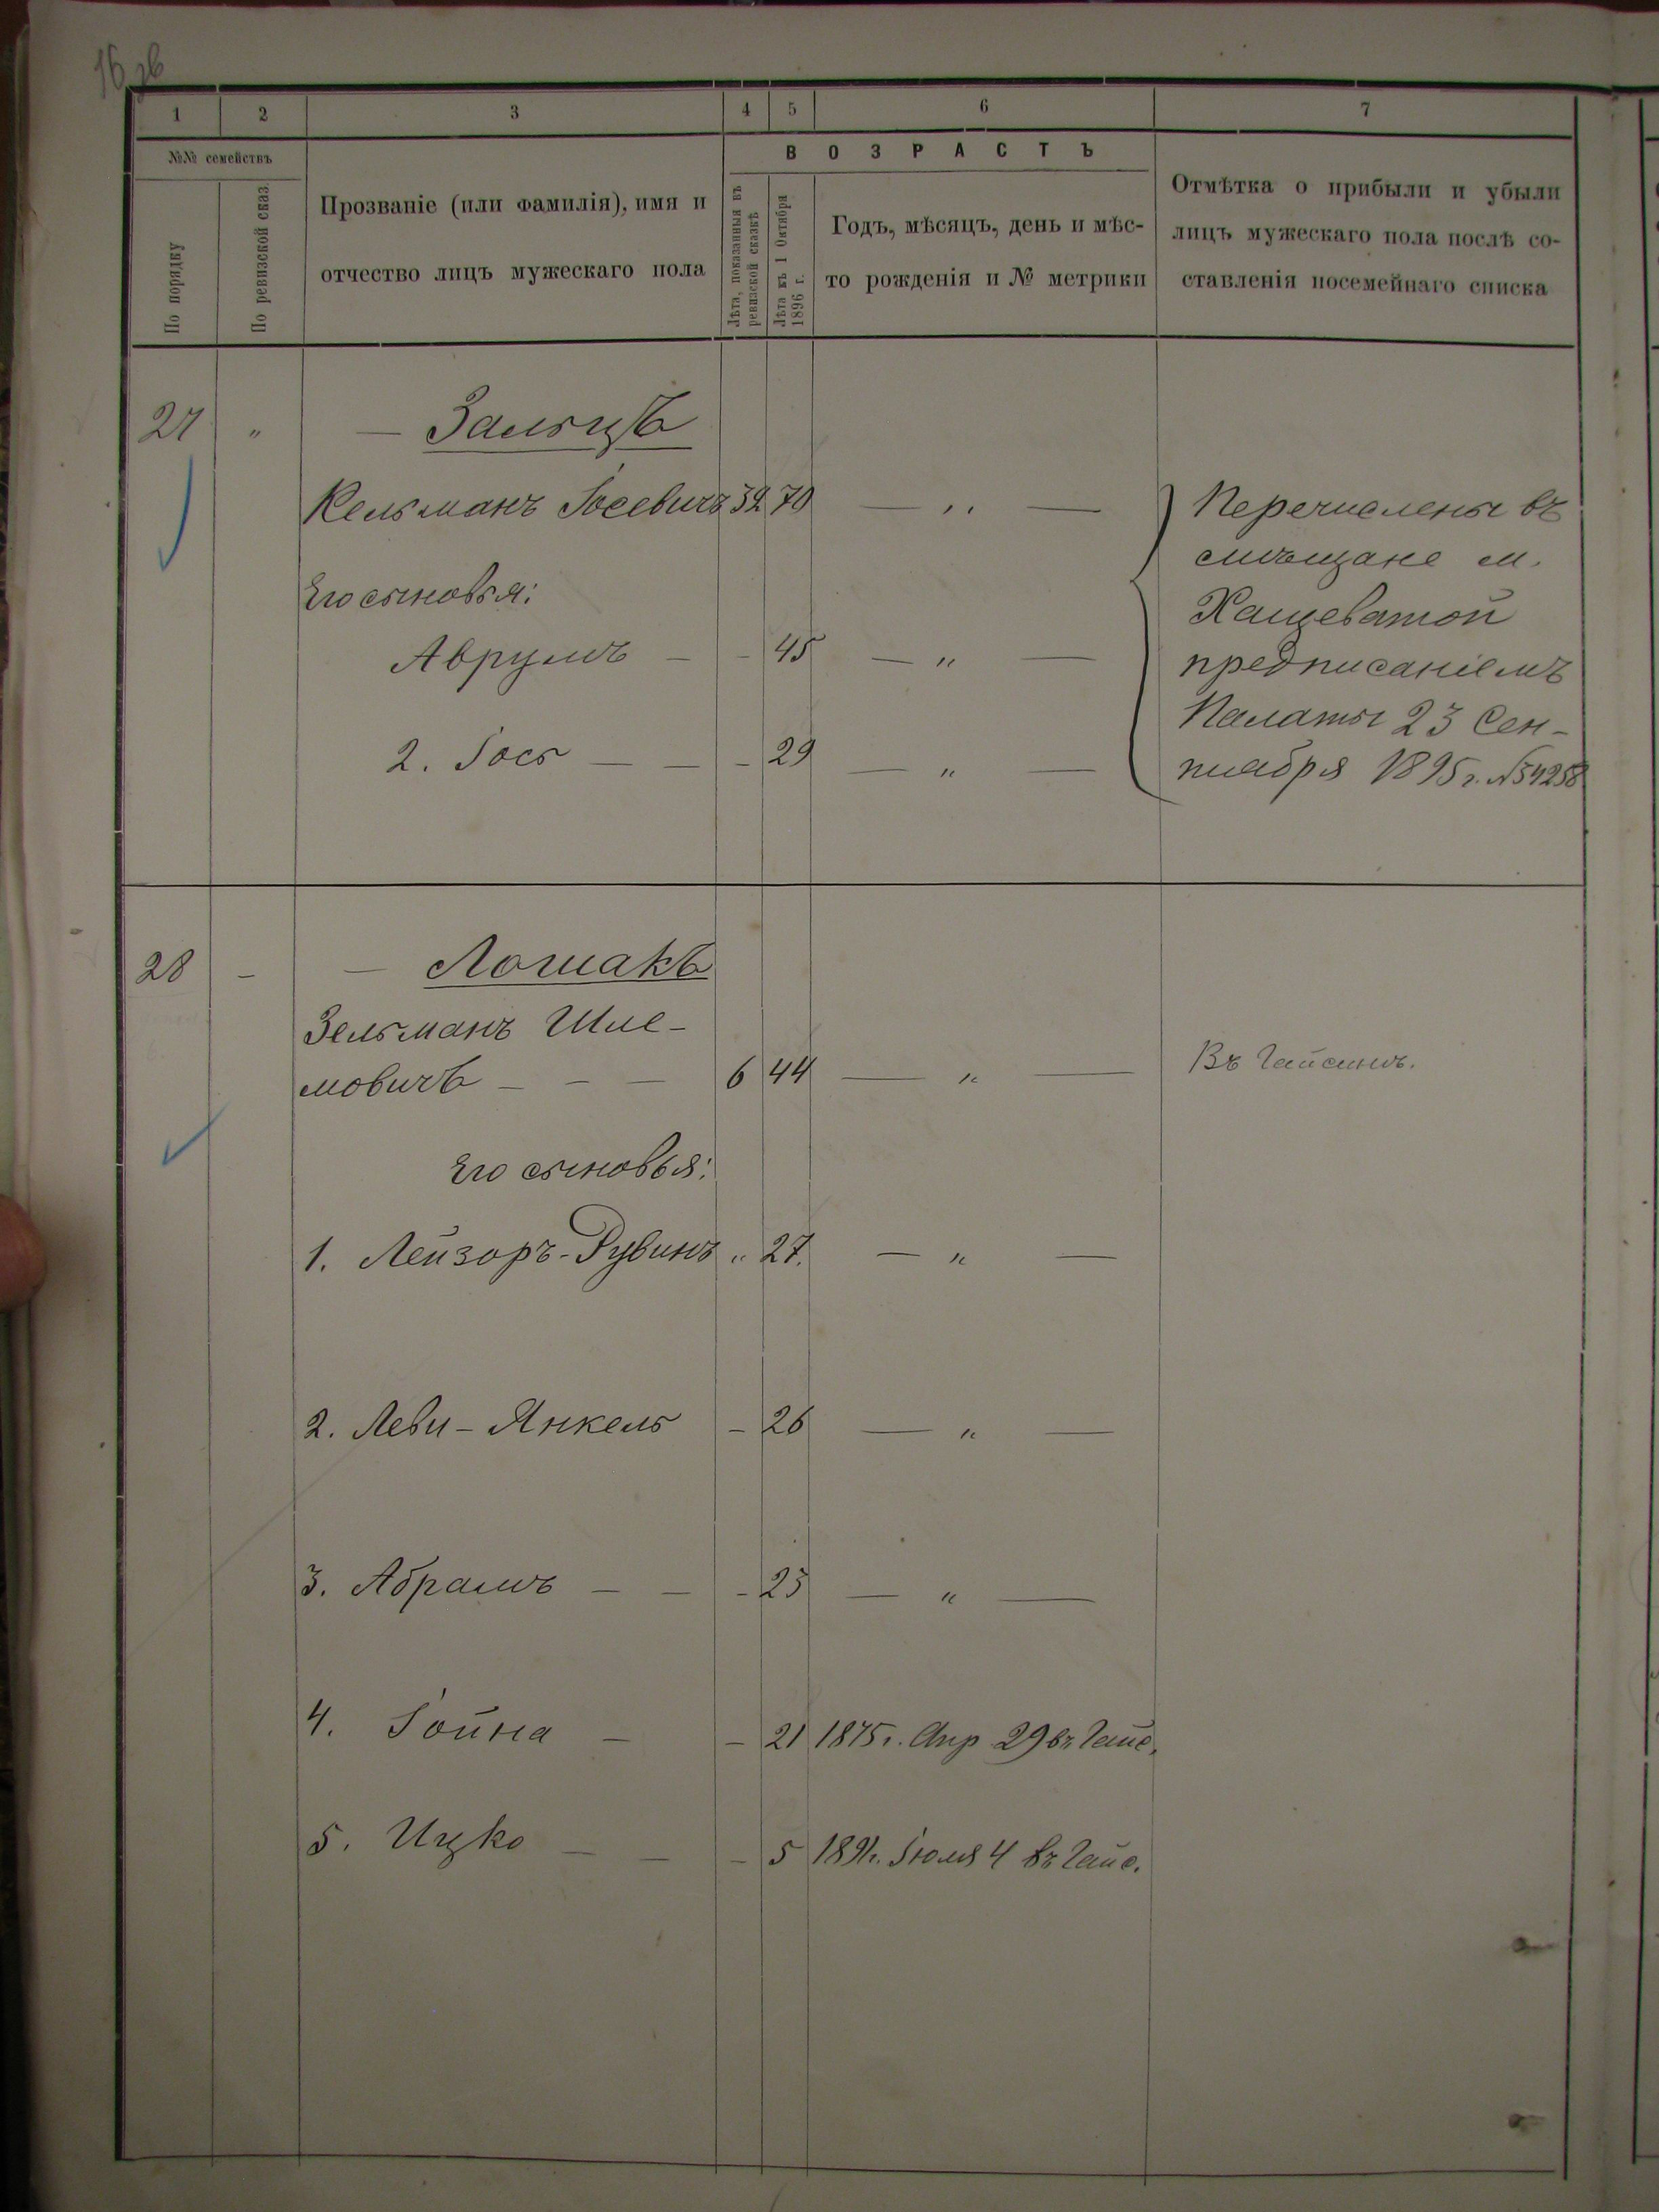 16 зв
1 2 3 4 5 6 7
№№ семействъ
По порядку
По ревизской сказ.
Прозваніе (или фамилія), имя и
отчество лицъ мужескаго пола
ВОЗРАСТЪ
Лѣта, показанныя въ
ревизской сказкѣ
Лѣта къ 1 Октября
1896 г.
Годъ, мѣсяцъ, день и мѣс-
то рожденія и № метрики
Отмѣтка о прибыли и убыли
лицъ мужескаго пола послѣ со-
ставленія посемейнаго списка
27 „ — Зальцъ
Кельманъ Іосевичъ 32 70 — „ —
Его сыновья:
Аврумъ — - 45 — „ —
2. Іось — — - 29 — „ —
Перечислены въ
мѣщане м.
Хащеватой
предписаніемъ
Палаты 23 Сен-
тября 1895 г. №54258
28 - — Лошакъ
Зельманъ Шле-
мовичъ — — — 6 44 — „ — Въ Гайсинѣ.
Его сыновья:
1. Лейзоръ-Рувинъ „ 27. — „ —
2. Леви-Янкель - 26 — „ —
3. Абрамъ — — - 23 — „ —
4. Іойна — - 21 1875 г. Апр 29 въ Гайс.
5. Ицко — — - 5 1891 г. Іюля 4 въ Гайс.